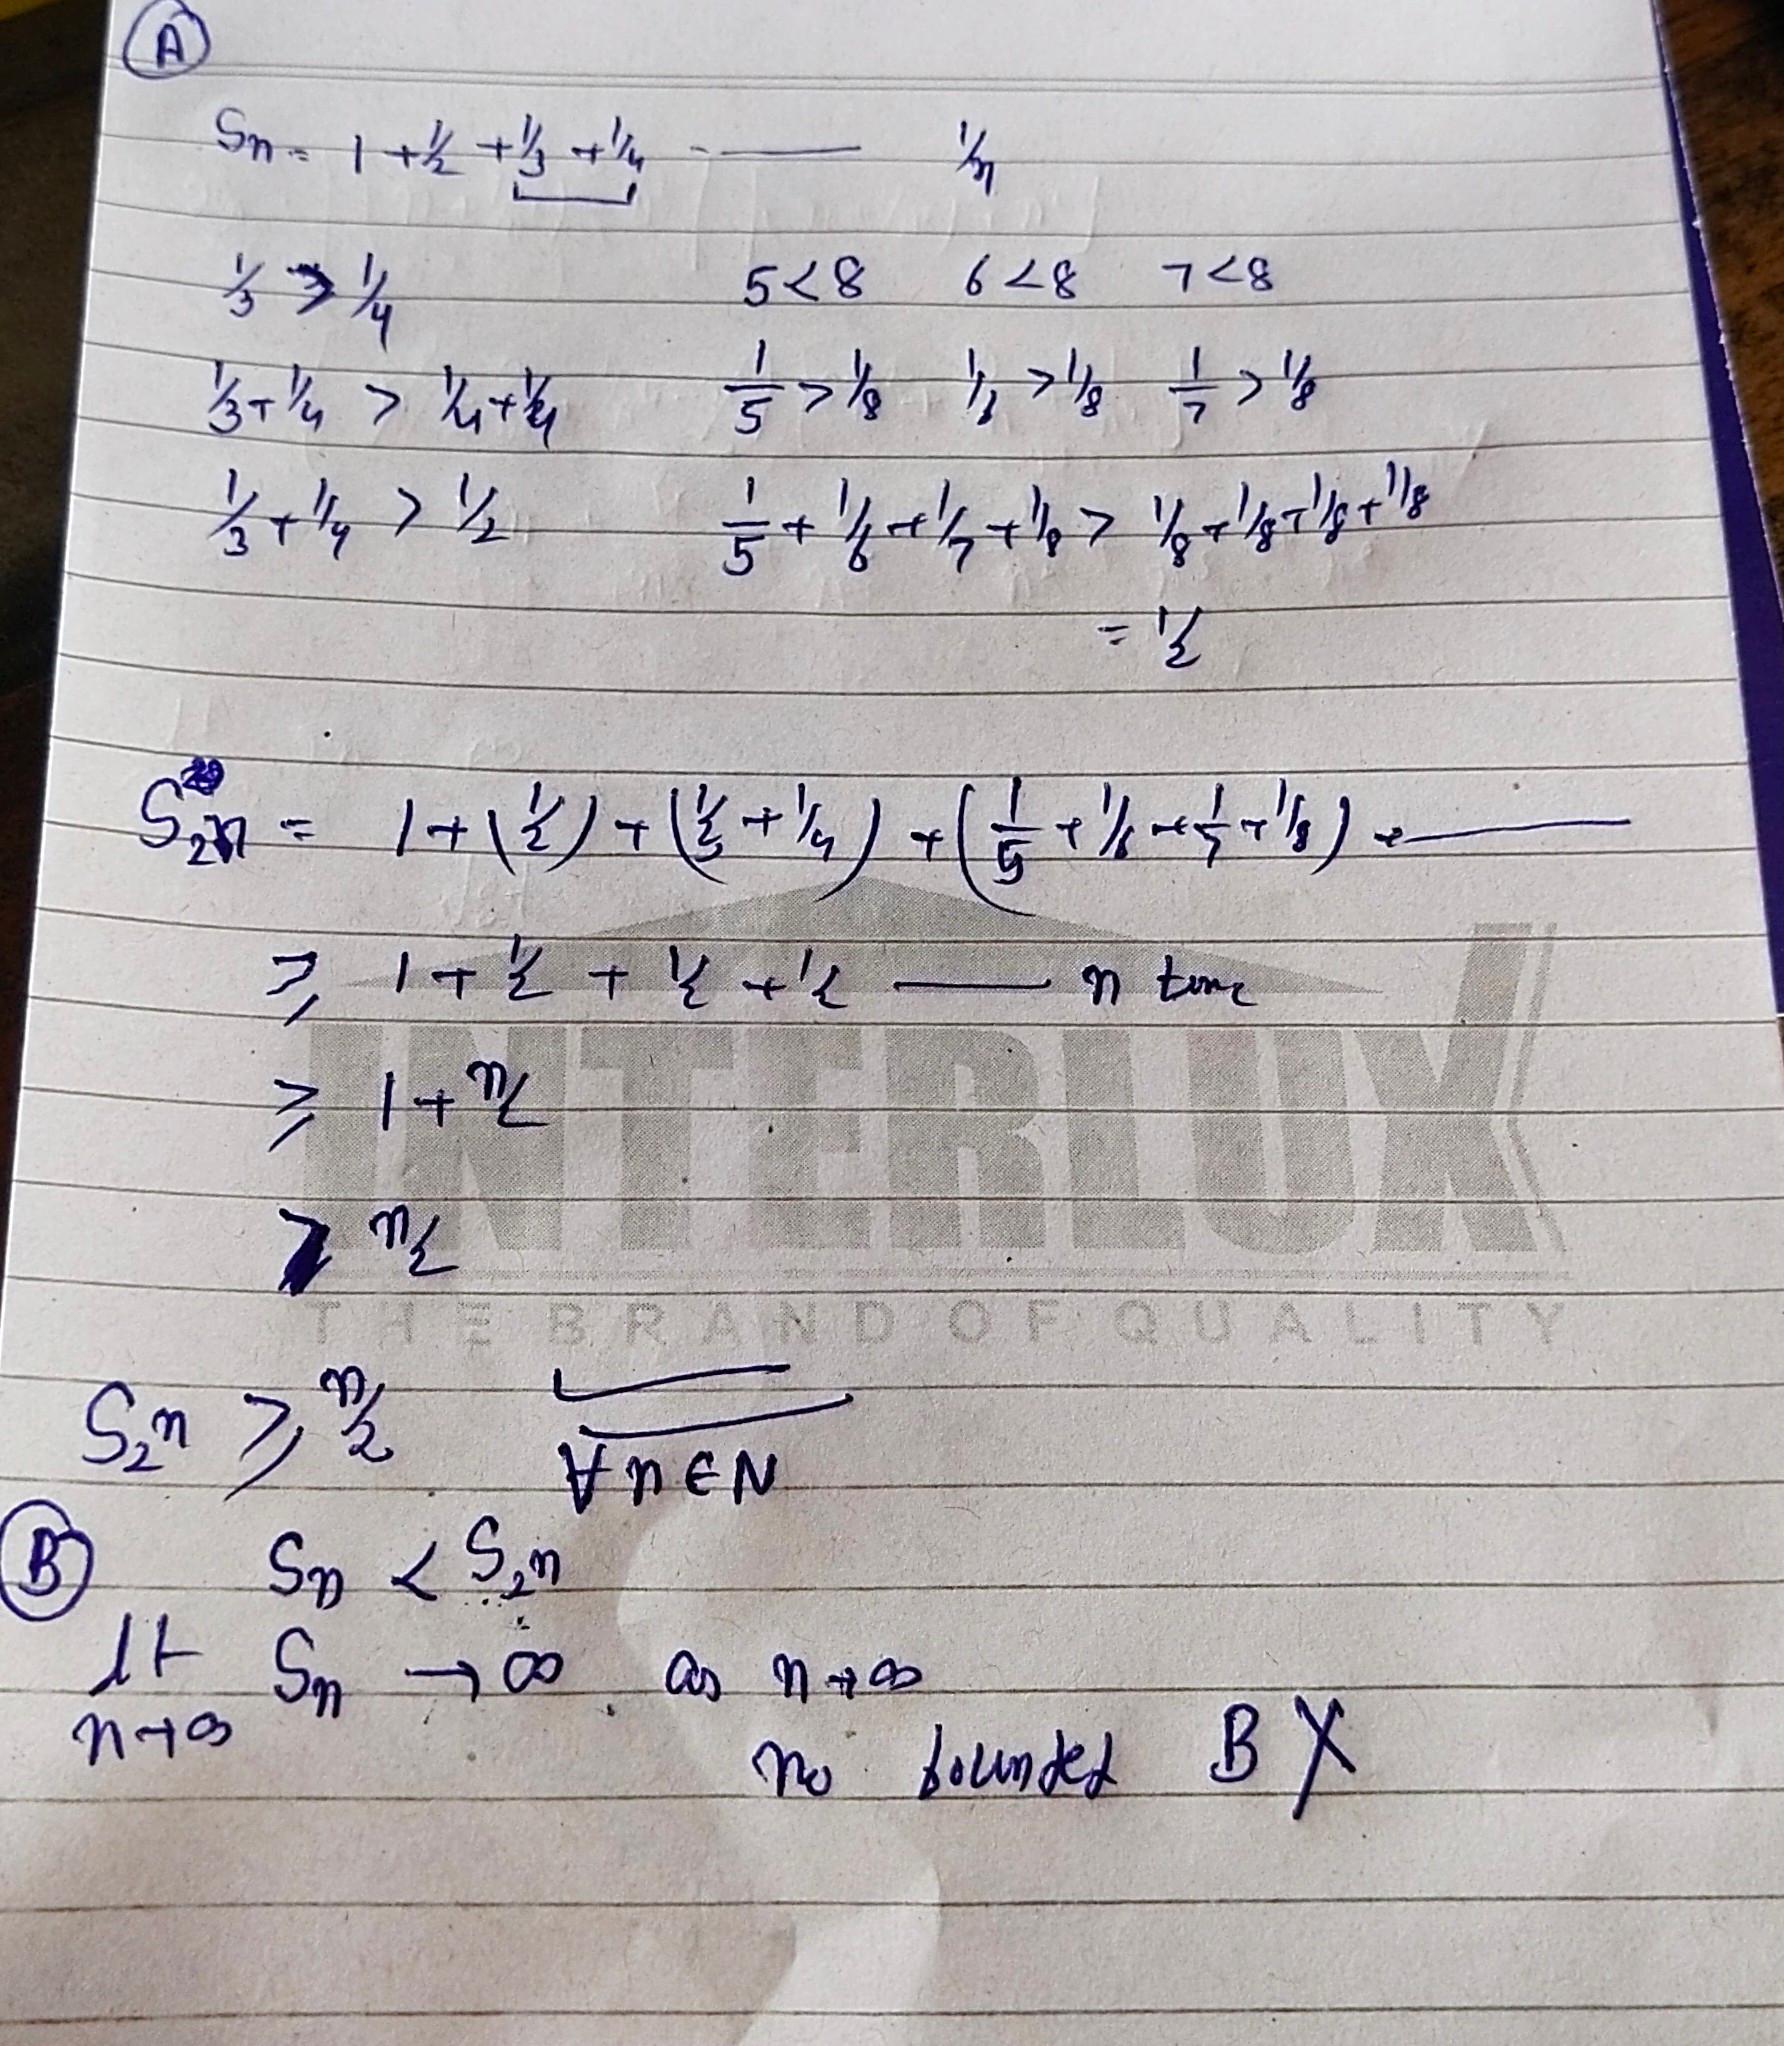 A
Sn = 1 + 1/2 + 1/3 + 1/4 - —— 1/n
1/3 > 1/4 5<8 6<8 7<8
1/3 + 1/4 > 1/4 + 1/4 1/5 > 1/8 1/6 > 1/8 1/7 > 1/8
1/3 + 1/4 > 1/2 1/5 + 1/6 + 1/7 + 1/8 > 1/8 + 1/8 + 1/8 + 1/8
= 1/2
S₂n = 1 + (1/2) + (1/3 + 1/4) + (1/5 + 1/6 + 1/7 + 1/8) + ——
≥ 1 + 1/2 + 1/2 + 1/2 —— n time
≥ 1 + n/2
INTERLUX
> n/2
THE BRAND OF QUALITY
S₂ⁿ ≥ n/2 ∀ n ∈ N
B Sn < S₂ⁿ
lt n→∞ Sn → ∞ as n→∞
no bounded B X